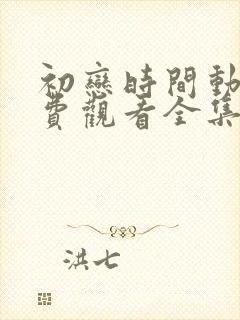 初戀時間動
費觀看全集
洪七